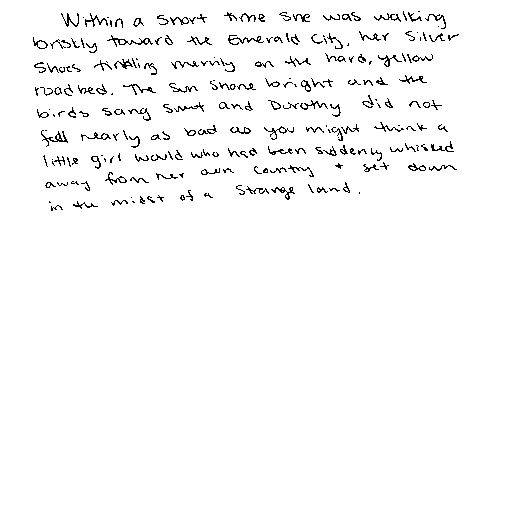 Within a short time she was walking
briskly toward the Emerald City, her Silver
Shoes tinkling merrily on the hard, yellow
roadbed. The sun shone bright and the
birds sang sweet and Dorothy did not
feel nearly as bad as you might think a
little girl would who had been suddenly whisked
away from her own country + set down
in the midst of a strange land.